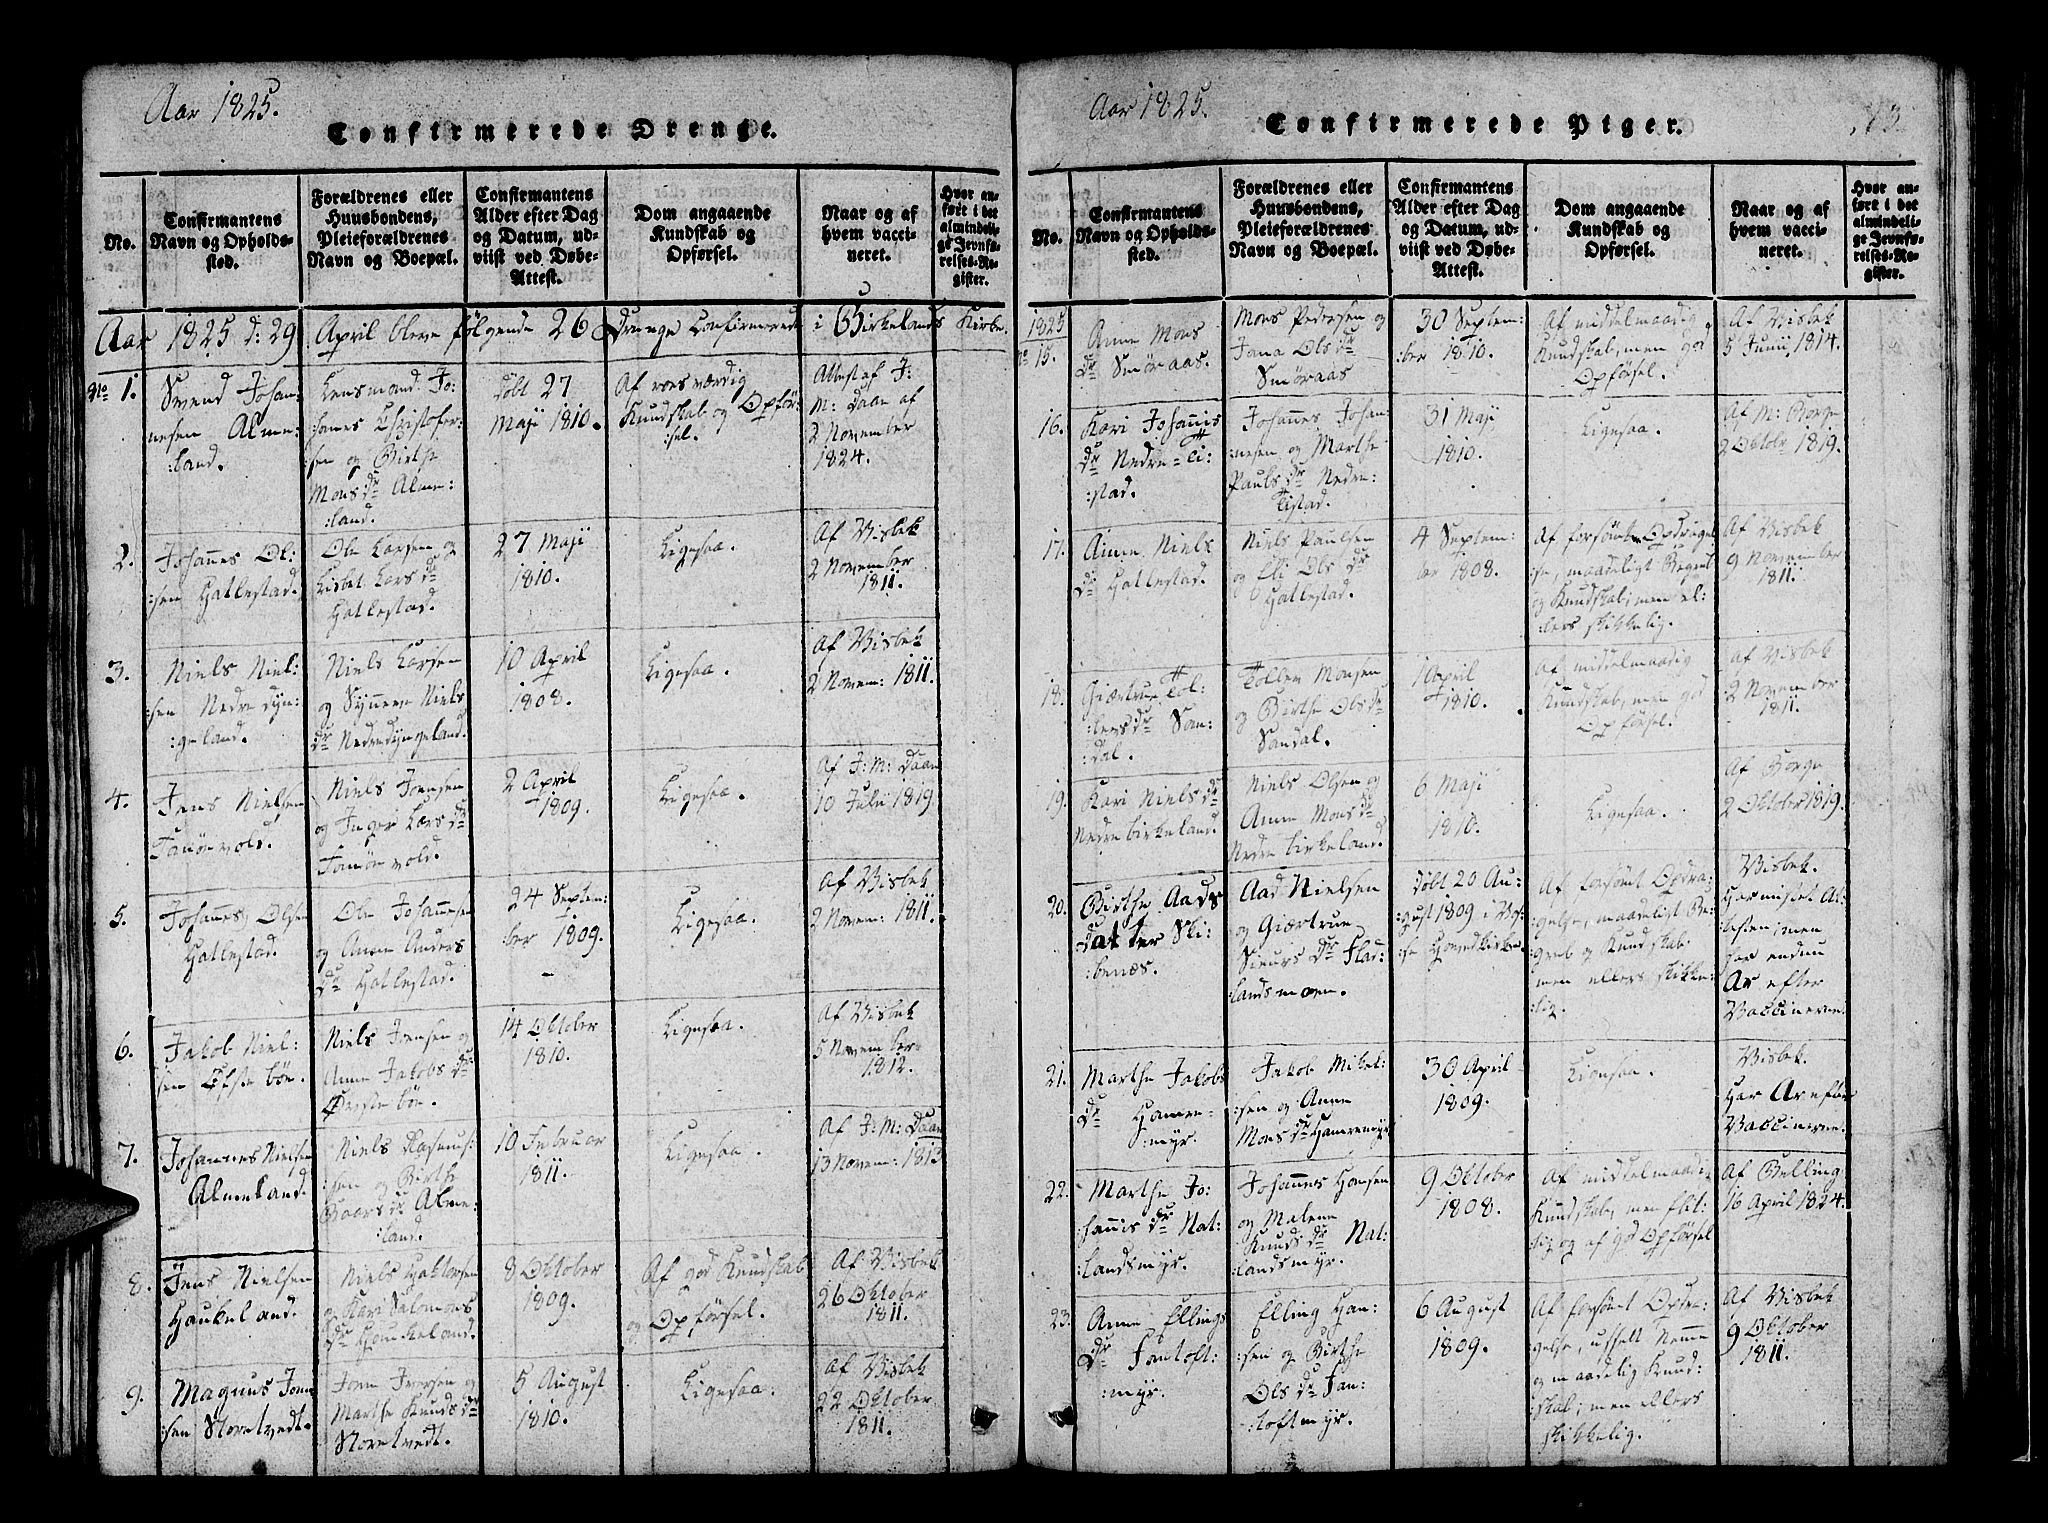 Aar 1825.
Confirmerede Drenge.
No.
Confirmantens
Navn og Opholds-
sted.
Forældrenes eller
Huusbondens,
Pleieforældrenes
Navn og Boepæl.
Confirmantens
Alder efter Dag
og Datum, ud-
viist ved Døbe-
Attest.
Dom angaaende
Kundskab og
Opførsel.
Naar og af
hvem vacci-
neret.
Hvor an-
ført i det
almindeli-
ge Jevnfø-
relses-Re-
gister.
Aar 1825 d: 29 April bleve følgende 26 Drenge Confirmerede i Birkelands Kirke.
No 1.
Svend Johan-
nesen Alme-
:land.
Lensmand Jo:
:hanes Christofer-
sen og Birthe
Mons dr Alme:
:land.
døbt 27
Maji 1810.
Af roesværdig
Kundskab og Opför-
:sel.
Attest af J:
M: Daae af
2 November
1824.
2.
Johannes Ol:
:sen Hatlestad.
Ole Larsen og
Lisbet Lars dr
Hatlestad.
27 Maji
1810.
Ligesaa.
Af Visbek
2 November
1811.
3.
Niels Niel:
:sen Nedre Dyn-
:geland.
Niels Larsen
og Synneve Niels
dr Nedredyngeland.
10 April
1808.
Ligesaa.
Af Visbek
2 Novem: 1811.
4.
Jens Nielsen
Niels Jensen
og Inger Lars dr
2 April
1809.
Ligesaa.
Af J: M: Daae
10 Julii 1819.
5.
Johannes Olsen
Hatlestad.
Ole Johannesen
og Anne Anders
dr Hatlestad.
24 Septem:
:ber 1809.
Ligesaa.
Af Visbek
2 Novem: 1811.
6.
Jakob Niel:
:sen Øvste bøe.
Niels Jensen og
Anne Jakobs dr
Øvste bøe.
14 Oktober
1810.
Ligesaa.
Af Visbek
5 November
1812.
7.
Johannes Nielsen
Almeland.
Niels Rasmus:
:sen og Birthe
Baars dr Alme:
:land.
10 Februar
1811.
Ligesaa.
Af J: M: Daae
13 Novem: 1813.
8.
Jens Nielsen
Haukeland.
Niels Haktorsen
og Kari Salomons
dr Haukeland.
8 Oktober
1809.
Af god Kundskab
og Opförsel.
Af Visbek
26 Oktober
1811.
9.
Magnus Jon-
:sen Storetvedt.
Jone Iversen og
Marthe Knuds dr
Storetvedt.
5 August
1810.
Ligesaa:
Af Visbek
22 Oktober
1811.
Aar 1825.
Confirmerede Piger.
No.
Confirmantens
Navn og Opholds-
sted.
Forældrenes eller
Huusbondens,
Pleieforældrenes
Navn og Boepæl.
Confirmantens
Alder efter Dag
og Datum, ud-
viist ved Døbe-
Attest.
Dom angaaende
Kundskab og
Opførsel.
Naar og af
hvem vacci-
neret.
Hvor an-
ført i det
almindeli-
ge Jevnfø-
relses-Re-
gister.
1825
No 15.
Anne Mons
dr Smøraas.
Mons Pedersen og
Jana Ols dr
Smøraas
30 Septem:
:ber 1810.
Af middelmaadig
Kundskab, men god
Opförsel.
Af Visbek
5 Junii, 1814.
16.
Kari Johannis
dr Nedre-Ti:
:stad.
Johannes Johan-
nesen og Marthe
Pauls dr Nedre-
Tistad.
31 Maji
1810.
Ligesaa.
Af M: Borge
2 Oktobr 1819.
17.
Anne Niels
dr Hatlestad.
Niels Paulsen
og Eli Ols dr
Hatlestad.
4 Septem:
ber 1808.
Af forsömt Opdragel
:se, maadeligt Begreb
og Kundskab; men el:
:lers skikkelig.
Af Visbek
9 November
1811.
18.
Giærtrue Tol:
:levs dr San:
:dal.
Tollev Monsen
og Birthe Ols dr
Sandal.
1 April
1810.
Af middelmaadig
Kundskab, men god
Opförsel.
Af Visbek
2 November
1811.
19.
Kari Niels dr
Nedre birkeland.
Niels Olsen og
Anne Mons dr
Nedre birkeland.
6 Maji
1810.
Ligesaa.
Af Borge
2 Oktober 1819.
20.
Birthe Aads
Datter Ski:
:benæs.
Aad Nielsen
og Giærtrue
Siurs dr Flad:
:landsmoen.
døbt 20 Au:
:gust 1809 i
:se Hovedkirke.
Af forsömt Opdra:
:gelse, maadeligt Be:
greb og Kundskab.
men ellers skikke:
:lig.
Visbek.
Har mistet At-
testen; men
har endnu
Ar efter
Vaccinerne.
21.
Marthe Jakobs
dr Hamre-
:myr.
Jakob Mikel:
:sen og Anne
Mons dr Hamremyr.
30 April
1809.
Ligesaa.
Visbek.
Har Ar efter
Vaccinerne.
22.
Marthe Jo:
:hannis dr Nat:
:landsmyr.
Johannes Hansen
og Malene
Knuds dr Nat:
:landsmyr.
9 Oktober
1808.
Af middelmaadig
Kundskab, men flit:
:lig og af god Opförsel
Af Belling
16 April 1824.
23.
Anne Ellings
dr Fantoft:
:myr.
Elling Han-
:sen og Birthe
Ols dr Fan-
:toftmyr.
6 August
1809.
Af forsömt Opdra-
gelse, usselt Nemme
og maadelig Kund:
:skab; men ellers
skikkelig.
Af Visbek
9 Oktober
1811.